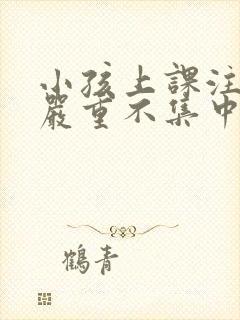 小孩上課注
嚴重不集中
鶴青